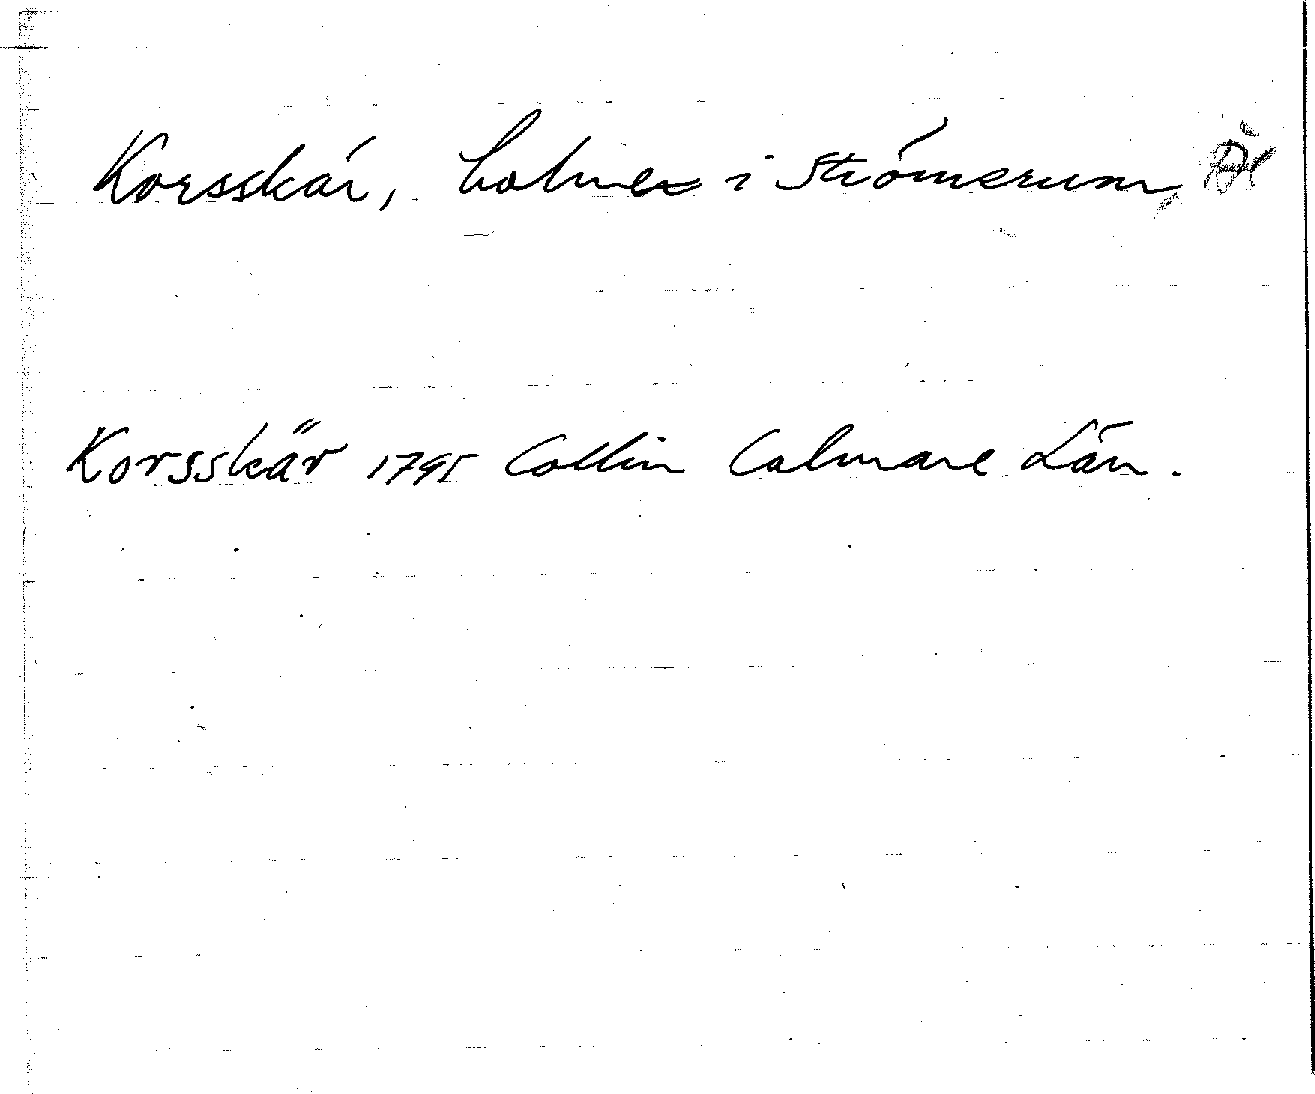 Korsskär, holmen i Strömserum,
Korsskär 1795 Collin Calmare Län.